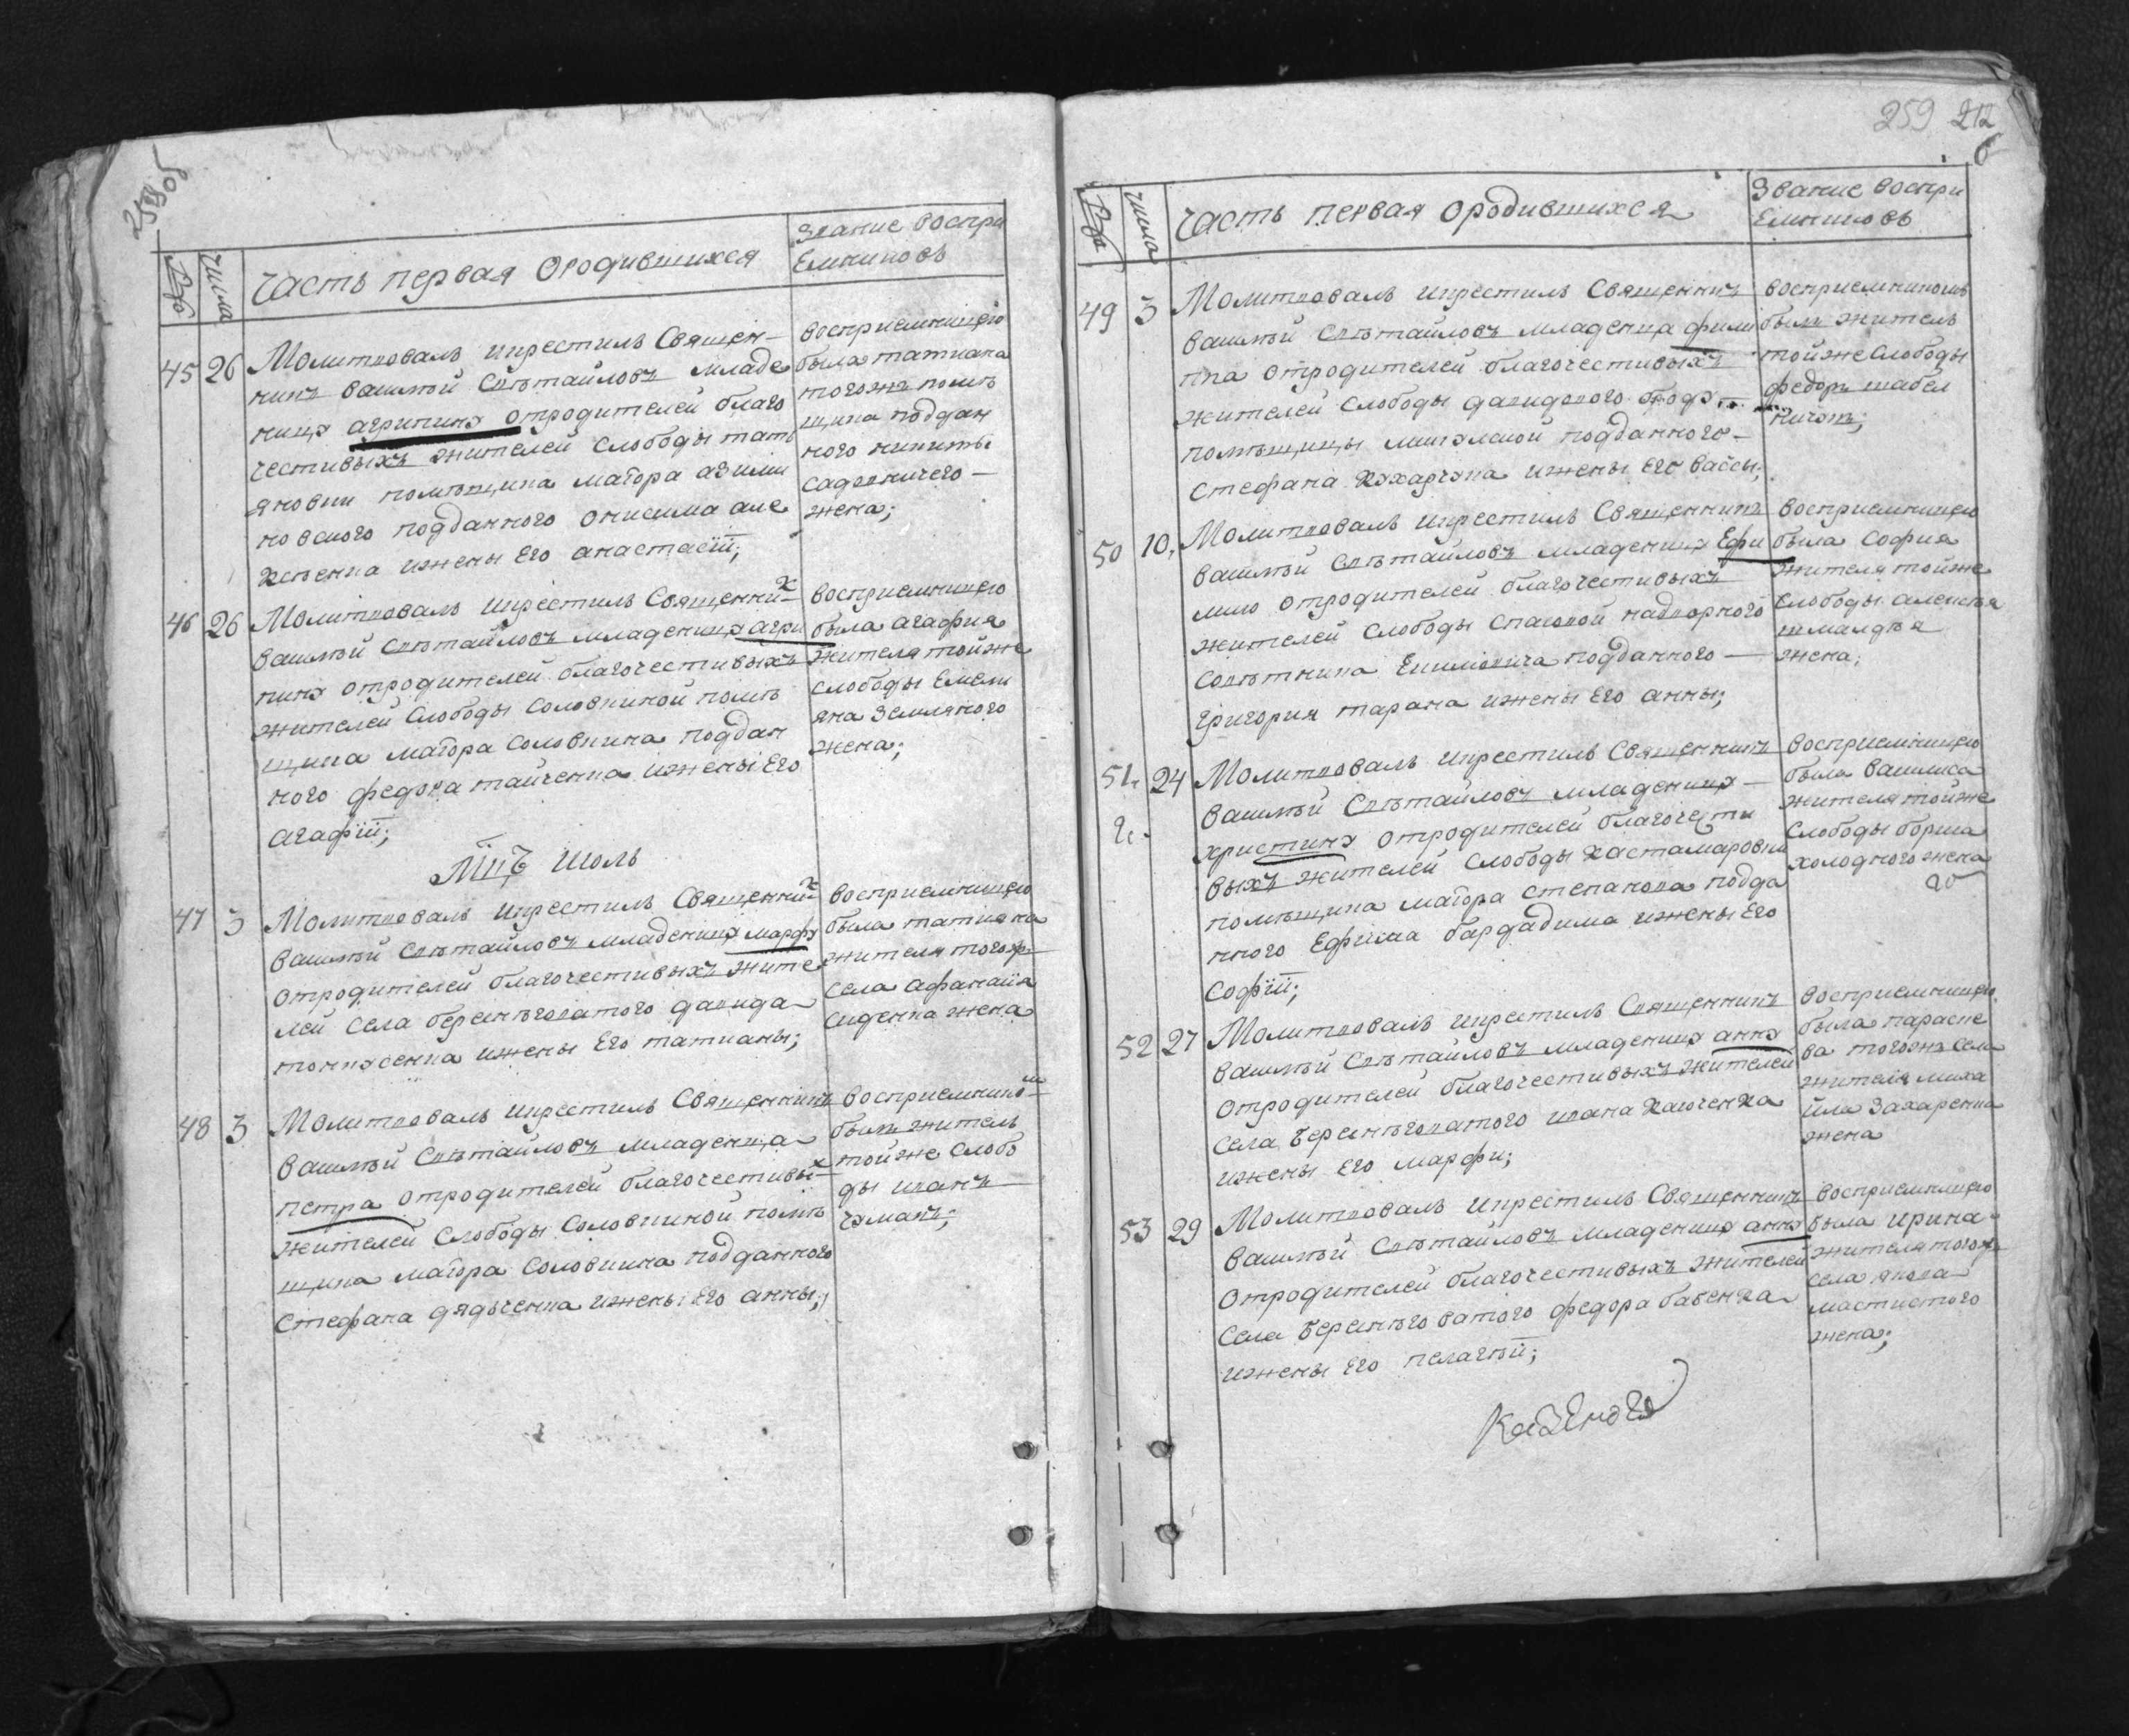 258 об
Число
Часть первая Ородившихся
Звание воспри
Емниковъ
45 26
Молитвовалъ икрестилъ Священ-
никъ василїй Свѣтайловъ младе
ницу агрипину отродителей благо
честивыхъ жителей слободы тать
яновки помѣщика маіора
подданного онисима але
ксѣенка ижены Его анастасїи;
восприемницею
была татиана
тогожъ помѣ
щика поддан
ного никиты
садовничего
жена;
46 26
Молитвовалъ икрестилъ Священникъ
василїй Свѣтайловъ младеницу агри
пину отродителей благочестивыхъ
жителей слободы Соловкиной помѣ
щика маіора Соловкина поддан
ного федора тайченка ижены Его
агафїи;
восприемницею
была агафия
жителя тойже
слободы Емели
яна Земляного
жена;
Мцъ июль
47 3
Молитвовалъ икрестилъ Священникъ
василїй Свѣтайловъ младеницу марфу
отродителей благочестивыхъ жите
лей села берекнеговатого давида
ижены Его татианы;
восприемницею
была татияна
жителя тогожъ
села афанасїя
сиденка жена
48 3
Молитвовалъ икрестилъ Священникъ
василїй Свѣтайловъ младенца
петра отродителей благочестивых
жителей слободы Соловкиной помѣ
щика маіора Соловкина подданного
стефана дядьченка ижены Его анны;
восприемником
былъ житель
тойже слобо
ды иванъ
чумакъ;
259 212
6
Числа
Часть первая ородившихся
Звание воспри
Емниковъ
49 3
Молитвовалъ икрестилъ Священникъ
василїй Свѣтайловъ младенца фили
па отродителей благочестивыхъ
жителей слободы давидового броду
помѣщицы подданного
стефана кухарчука ижены Его вассы;
восприемникомъ
былъ житель
тойже слободы
федоръ шабел
ничокъ;
50 10,
Молитвовалъ икрестилъ Священникъ
василїй Свѣтайловъ младеницу Ефи
мию отродителей благочестивыхъ
жителей слободы спасовой надворного
совѣтника подданного
григория тарана ижены Его анны;
восприемницею
была софия
жителя тойже
слободы алексѣя
шмалдѣя
жена;
51, 24
Молитвовалъ икрестилъ Священникъ
василїй Свѣтайловъ младеницу
христину отродителей благочести
выхъ жителей слободы кастамаровки
помѣщика маіора степанова подда
нного Ефима бардадима ижены Его
софїи;
восприемницею
была василиса
жителя тойже
слободы бориса
холодного жена
52 27
Молитвовалъ икрестилъ Священникъ
василїй Свѣтайловъ младеницу анну
отродителей благочестивыхъ жителей
села берекнеговатого ивана
ижены Его марфи;
восприемницею
была параске
ва тогожъ села
жителя миха
йла Захаренка
жена
53 29
Молитвовалъ икрестилъ Священникъ
василїй Свѣтайловъ младеницу анну
отродителей благочестивыхъ жителей
села берекнеговатого федора бабенка
ижены Его пелагїи;
восприемницею
была ирина
жителя тогожъ
села якова
мастистого
жена;
Казеного